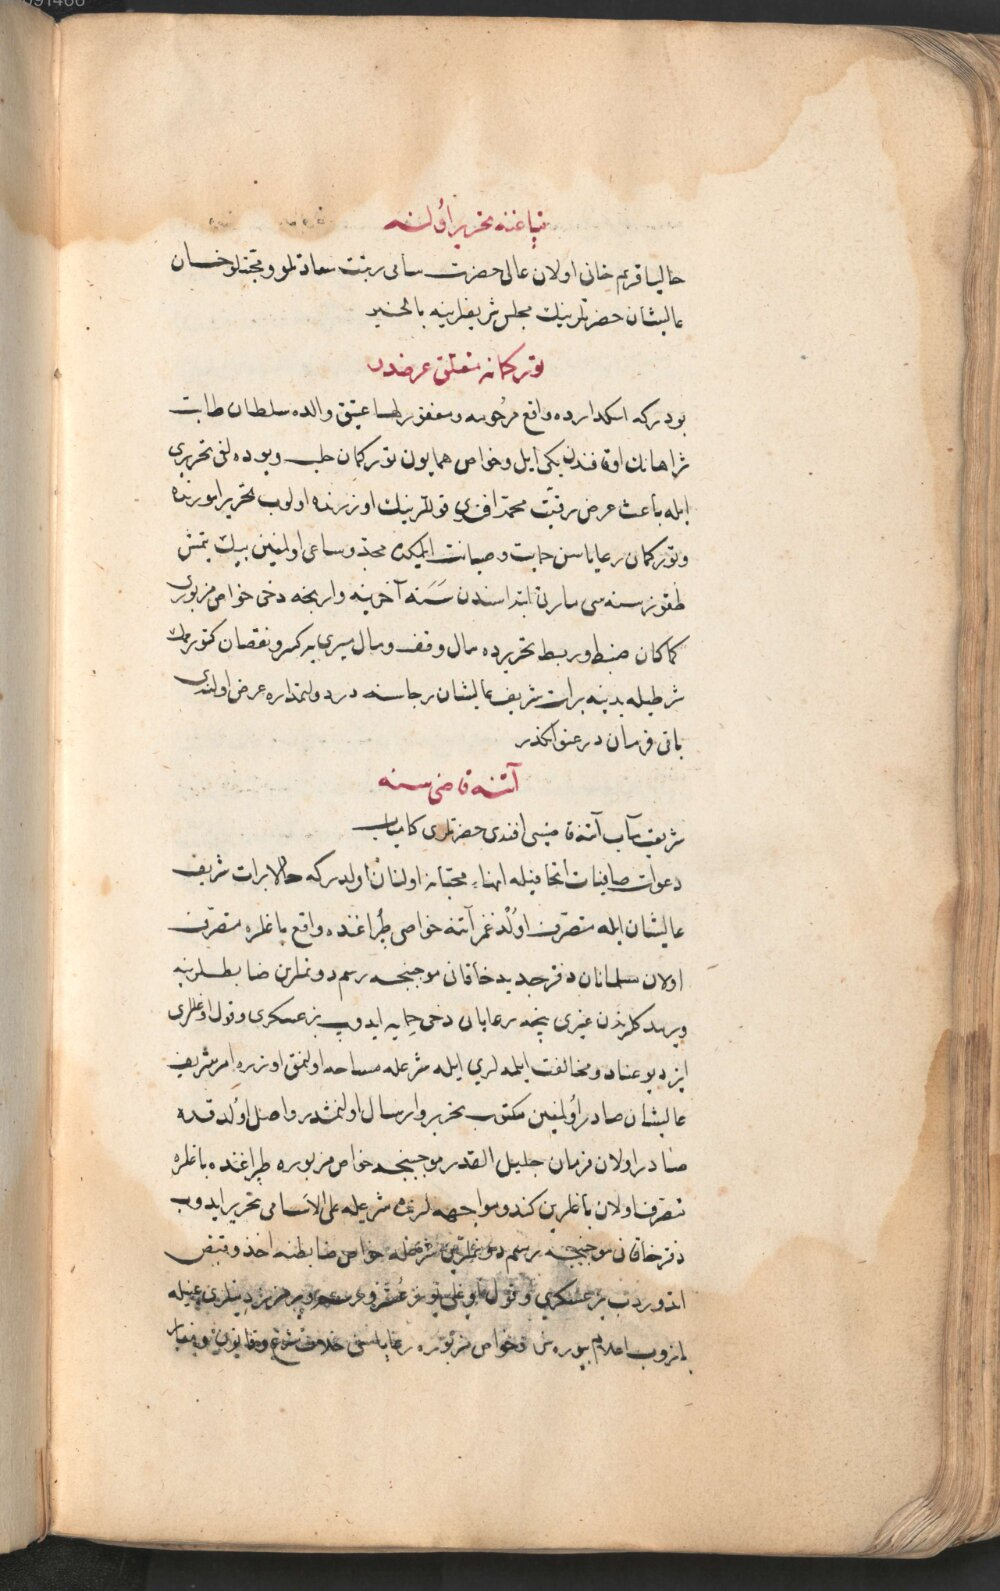 091466
تحریر اولنه
حالیا قریم خانی اولان عالی حضرت سامی رتبت سعادتلو و محبتلو خان
عالیشان حضرتلرینك مجلس شریفلرینه بالخیر
تورکمانه متعلق عرضدر
بودركه اسكدارده واقع مرحومه و مغفور لها عتیق والده سلطان طابت
ثراهانك اوقافندن یكی ایل و خواص همایون تورکمان حلب
ایله باعث عرض رقیت محمد افندی قوللرینك اوزرنده اولوب
و تورکمان رعایاسن حمایت و صیانت ایلمكده مجد و ساعی اولمغین بیك یتمش
طقوز سنه سی مارتی ابتداسندن سنه آخرینه وارنجه دخی خواص مزبوری
كماكان ضبط و ربط تحریرده مال وقف و مال میری یه كسر و نقصان
شرطیله یدینه برات شریف عالیشان رجاسنه در دولتمداره عرض اولندی
باقی فرمان
آتنه قاضی سنه
شریعتمآب آتنه قاضیسی افندی حضرتلری كامیاب
دعوات صافیات اتحافیله انهاء محبانه اولنان اولدركه حالا برات شریف
عالیشان ایله متصرف اولدغمز آتنه خواصی طپراغنده واقع باغلره متصرف
اولان مسلمانان دفتر جدید خاقانی موجبنجه رسم دونملرین ضابطلرینه
ویرمدكلرندن غیری نیجه رعایایی دخی حمایه ایدوب بز عسكری و قول اوغللری
ایز دیو عناد و مخالفت ایلمه لری ایله شرعله مساحه اولنمق اوزره امر شریف
عالیشان صادر اولمغین مكتوب تحریر و ارسال اولنمشدر واصل اولدقده
صادر اولان فرمان جلیل القدر موجبنجه خواص مزبوره طپراغنده باغلره
متصرف اولان باغلرین كندو مواجهه لرنده شرعیله علی الاسامی تحریر ایدوب
دفتر خاقانی موجبنجه رسم دونملرین شرعله خواص ضابطنه اخذ و قبض
ایتدوروب بز عسكری و قول اوغلی یوز عشر و رسم ویرمزیز دینلری
یازوب اعلام بیوره سز و خواص مزبوره رعایاسنی خلاف شرع و قانون